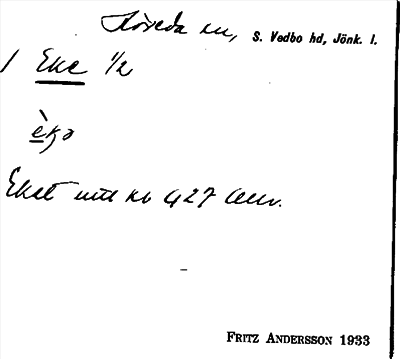 Höreda sn, S. Vedbo hd, Jönk. l.
1 Eke ½
èkə
Eket utt kb 427
FRITZ ANDERSSON 1933